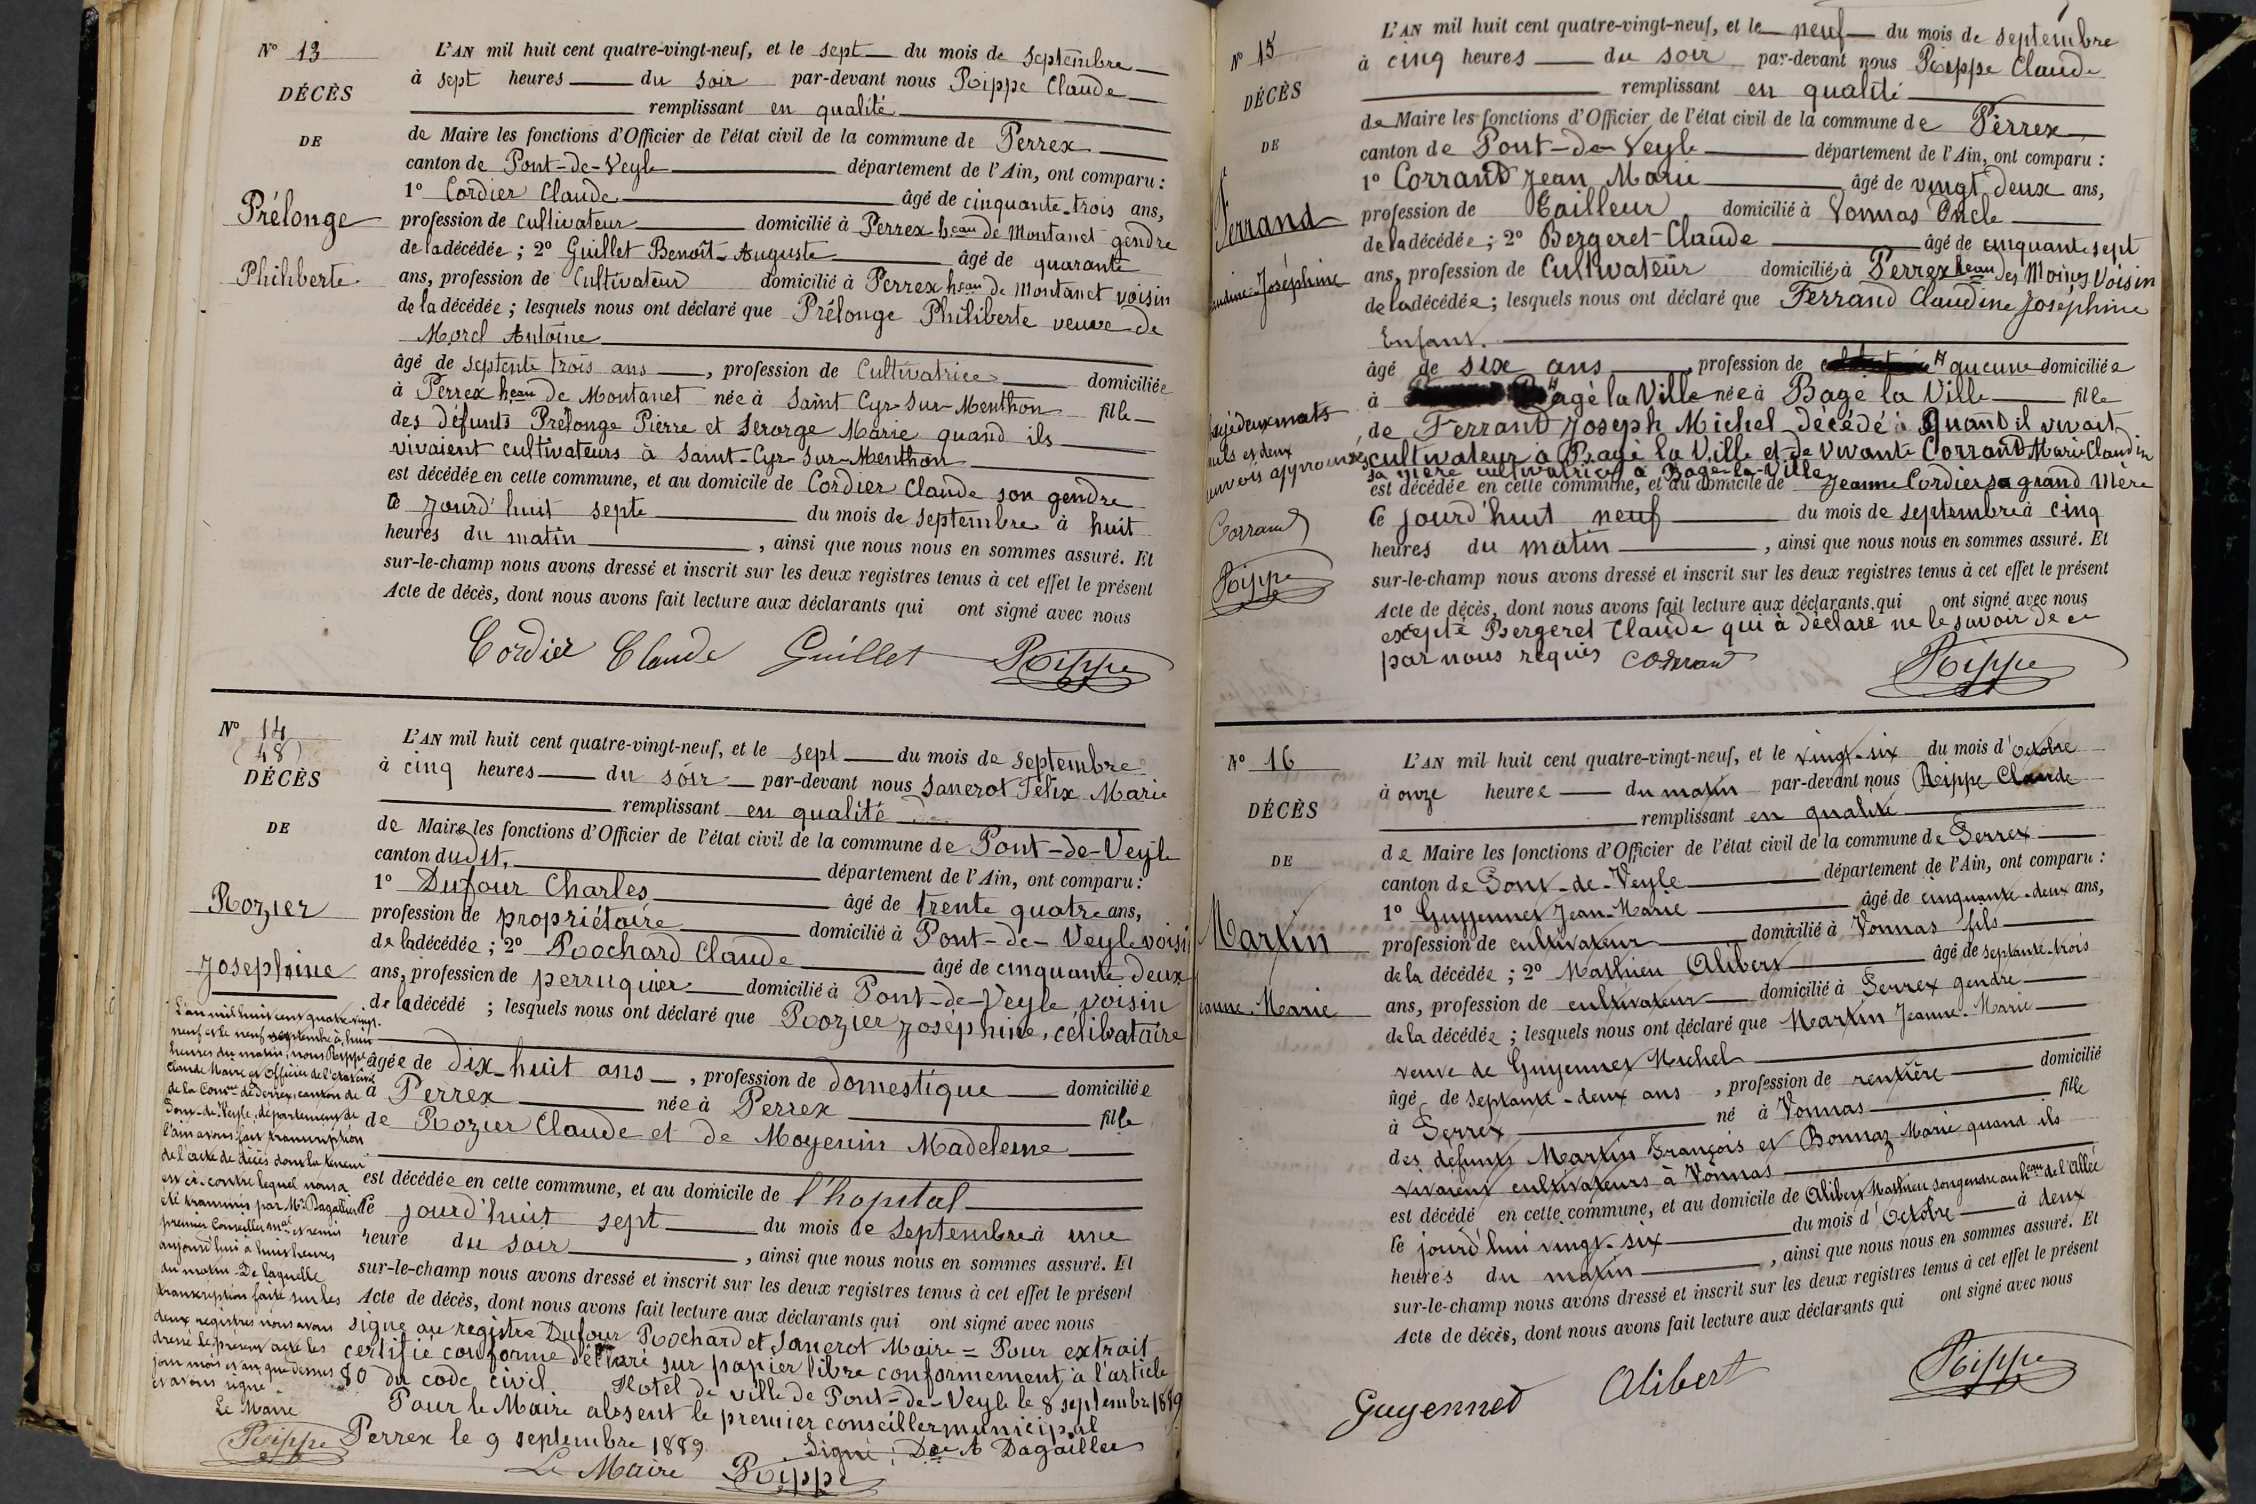 N° 13
DÉCÈS
DE
Prélonge
Philiberte
L'AN mil huit cent quatre-vingt-neuf, et le sept du mois de septembre
à sept heures du soir par-devant nous Rippe Claude
remplissant en qualité
de Maire les fonctions d'Officier de l'état civil de la commune de Perrex
canton de Pont-de-Veyle département de l'Ain, ont comparu :
1° Cordier Claude âgé de cinquante-trois ans,
profession de cultivateur domicilié à Perrex heau de Montanet gendre
de la décédée ; 2° Guillet Benoît-Auguste âgé de quarante
ans, profession de Cultivateur domicilié à Perrex heau de Montanet voisin
de la décédée ; lesquels nous ont déclaré que Prélonge Philiberte veuve de
Morel Antoine
âgé de septente trois ans, profession de Cultivatrice domiciliée
à Perrex heau de Montanet née à Saint Cyr-sur-Menthon fille
des défunts Prélonge Pierre et Serorge Marie quand ils
vivaient cultivateurs à Saint-Cyr-sur-Menthon
est décédée en cette commune, et au domicile de Cordier Claude son gendre
le Jourd'huit septe du mois de septembre à huit
heures du matin, ainsi que nous nous en sommes assuré. Et
sur-le-champ nous avons dressé et inscrit sur les deux registres tenus à cet effet le présent
Acte de décès, dont nous avons fait lecture aux déclarants qui ont signé avec nous
Cordier Claude Guillet Rippe
N° 14
(48)
DÉCÈS
DE
Rozier
Josephine
L'AN mil huit cent quatre-vingt-neuf, et le sept du mois de septembre
à cinq heures du soir par-devant nous Sanerot Félix Marie
remplissant en qualité
de Maire les fonctions d'Officier de l'état civil de la commune de Pont-de-Veyle
canton dudit, département de l'Ain, ont comparu :
1° Dufour Charles âgé de trente quatre ans,
profession de propriétaire domicilié à Pont-de-Veyle voisin
de la décédée ; 2° Rochard Claude âgé de cinquante deux
ans, profession de perruquier domicilié à Pont-de-Veyle, voisin
de la décédé ; lesquels nous ont déclaré que Rozier Joséphine, célibataire
âgée de dix-huit ans, profession de domestique domiciliée
à Perrex née à Perrex fille
de Rozier Claude et de Moyenin Madeleine
est décédée en cette commune, et au domicile de l'hopital
le jourd'huit sept du mois de septembre à une
heure du soir, ainsi que nous nous en sommes assuré. Et
sur-le-champ nous avons dressé et inscrit sur les deux registres tenus à cet effet le présent
Acte de décès, dont nous avons fait lecture aux déclarants qui ont signé avec nous
signé au registre Dufour Rochard et Sanerot Maire = Pour extrait
certifié conforme délivré sur papier libre conformement à l'article
80 du code civil. Hotel de ville de Pont-de-Veyle le 8 septembre 1889
Pour le Maire absent le premier conseiller municipal
Perrex le 9 septembre 1889 Signé : Dor A Dagallier
Le Maire Rippe
L'an mil huit cent quatre-vingt-
neuf et le neuf septembre à huit
heures du matin, nous Rippe
Claude Maire et Officier de l'état civil
de la Comne de Perrex, canton de
Pont-de-Veyle, département de
l'Ain avons fait transcription
de l'acte de décès dont la teneur
est ci-contre lequel nous a
été transmis par Mr Dagallier
premier Conseiller mal et remis
aujourd'hui à huit heures
du matin. De laquelle
transcription faite sur les
deux registres nous avons
dressé le présent acte les
jour mois et an que dessus
et avons signé
Le Maire
Rippe
N° 15
DÉCÈS
DE
Ferrand
Joséphine
L'AN mil huit cent quatre-vingt-neuf, et le neuf du mois de septembre
à cinq heures du soir par-devant nous Rippe Claude
remplissant en qualité
de Maire les fonctions d'Officier de l'état civil de la commune de Perrex
canton de Pont-de-Veyle département de l'Ain, ont comparu :
1° Corrand Jean Marie âgé de vingt deux ans,
profession de Tailleur domicilié à Vonnas Oncle
de la décédée ; 2° Bergeret Claude âgé de cinquante sept
ans, profession de Cultivateur domicilié à Perrex heau des Moines Voisin
de la décédée ; lesquels nous ont déclaré que Ferrand Claudine Joséphine
Enfant.
âgé de six ans, profession de aucune domiciliée
à Bagé la Ville née à Bagé la Ville fille
de Ferrand Joseph Michel décédé à Quand il vivait
cultivateur à Bagé la Ville et de vivante Corrand Marie Claudin
sa mère cultivatrice à Bagé-la-Ville
est décédée en cette commune, et au domicile de Jeanne Cordier sa grand Mère
le jourd'huit neuf du mois de septembre à cinq
heures du matin, ainsi que nous nous en sommes assuré. Et
sur-le-champ nous avons dressé et inscrit sur les deux registres tenus à cet effet le présent
Acte de décès, dont nous avons fait lecture aux déclarants qui ont signé avec nous
excepté Bergeret Claude qui à déclaré ne le savoir de ce
par nous requis Corrand Rippe
deux mots
nuls et deux
approuvés
Corrand
Rippe
N° 16
DÉCÈS
DE
Martin
Jeanne-Marie
L'AN mil huit cent quatre-vingt-neuf, et le vingt-six du mois d'octobre
à onze heures du matin par-devant nous Rippe Claude
remplissant en qualité
de Maire les fonctions d'Officier de l'état civil de la commune de Perrex
canton de Pont-de-Veyle département de l'Ain, ont comparu :
1° Guyennet Jean-Marie âgé de cinquante-deux ans,
profession de cultivateur domicilié à Vonnas fils
de la décédée ; 2° Mathieu Alibert âgé de septante-trois
ans, profession de cultivateur domicilié à Perrex gendre
de la décédée ; lesquels nous ont déclaré que Martin Jeanne-Marie
veuve de Guyennet Michel
âgé de septante-deux ans, profession de rentière domicilié
à Perrex né à Vonnas fille
des défunts Martin François et Bonnaz Marie quand ils
vivaient cultivateurs à Vonnas
est décédé en cette commune, et au domicile de Alibert Mathieu son gendre au heau de l'Allée
le jourd'hui vingt-six du mois d'Octobre à deux
heures du matin, ainsi que nous nous en sommes assuré. Et
sur-le-champ nous avons dressé et inscrit sur les deux registres tenus à cet effet le présent
Acte de décès, dont nous avons fait lecture aux déclarants qui ont signé avec nous
Guyennet Alibert Rippe